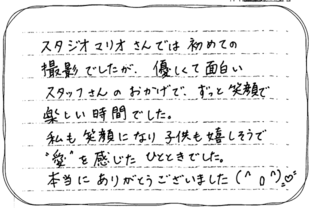 スタジオマリオさんでは初めての
撮影でしたが、優しくて面白い
スタッフさんのおかげで、ずっと笑顔で
楽しい時間でした。
私も笑顔になり子供も嬉しそうで
"愛"を感じたひとときでした。
本当にありがとうございました(^o^)♡